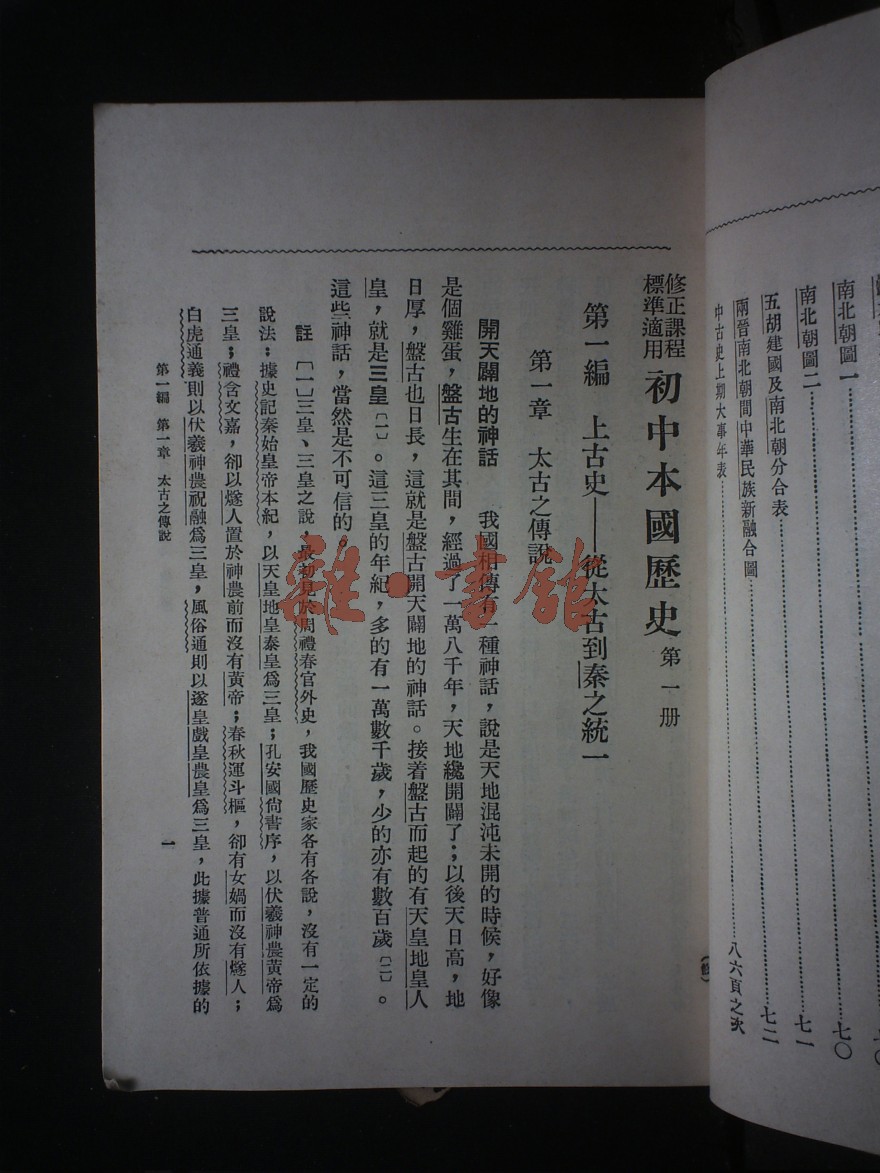 南北朝圖一……七〇
南北朝圖二……七一
五胡建國及南北朝分合表……七二
兩晉南北朝間中華民族新融合圖
中古史上期大事年表……八六頁之次
修正課程標準適用 初中本國歷史 第一册
第一編 上古史——從太古到秦之統一
第一章 太古之傳說
開天闢地的神話 我國相傳有一種神話，說是天地混沌未開的時候，好像
是個雞蛋，盤古生在其間，經過了一萬八千年，天地纔開闢了；以後天日高，地
日厚，盤古也日長，這就是盤古開天闢地的神話。接着盤古而起的有天皇地皇人
皇，就是三皇〔一〕。這三皇的年紀，多的有一萬數千歲，少的亦有數百歲〔二〕。
這些神話，當然是不可信的。
註 〔一〕三皇、三皇之說，最初見於周禮春官外史，我國歷史家各有各說，沒有一定的
說法：據史記秦始皇帝本紀，以天皇地皇泰皇爲三皇；孔安國尙書序，以伏羲神農黃帝爲
三皇；禮含文嘉，卻以燧人置於神農前而沒有黃帝；春秋運斗樞，卻有女媧而沒有燧人；
白虎通義則以伏羲神農祝融爲三皇，風俗通則以遂皇戲皇農皇爲三皇，此據普通所依據的
第一編 第一章 太古之傳說
一
雜·書館